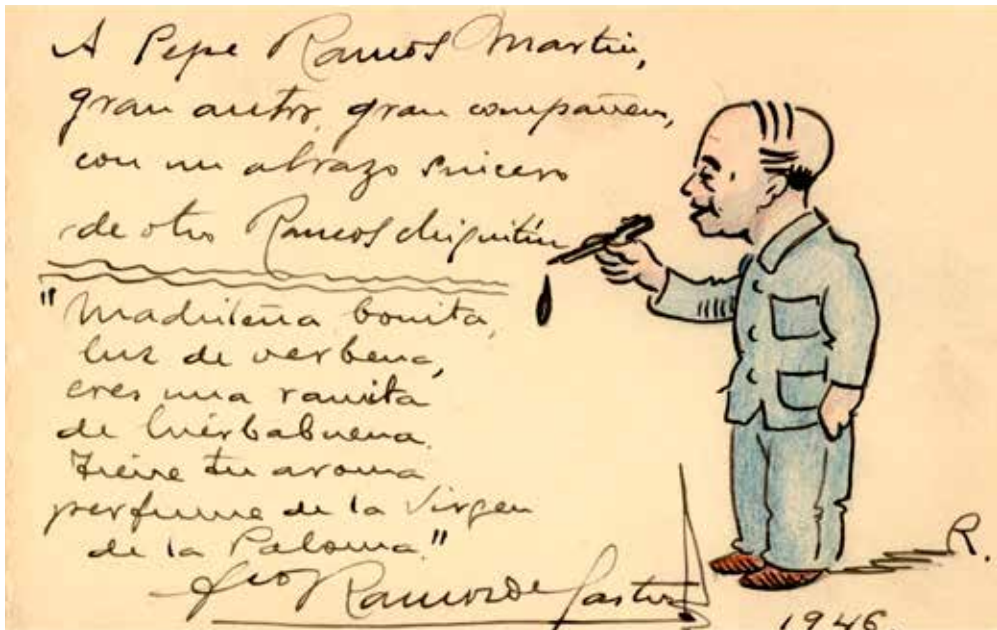 A Pepe Ramos Martín,
gran autor, gran compañero,
con un abrazo sincero
de otro Ramos chiquitín
"Madrileña bonita,
luz de verbena,
eres una ramita
de hierbabuena.
Tiene tu aroma
perfume de la Virgen
de la Paloma."
Fco Ramos de Castro
R.
1946.